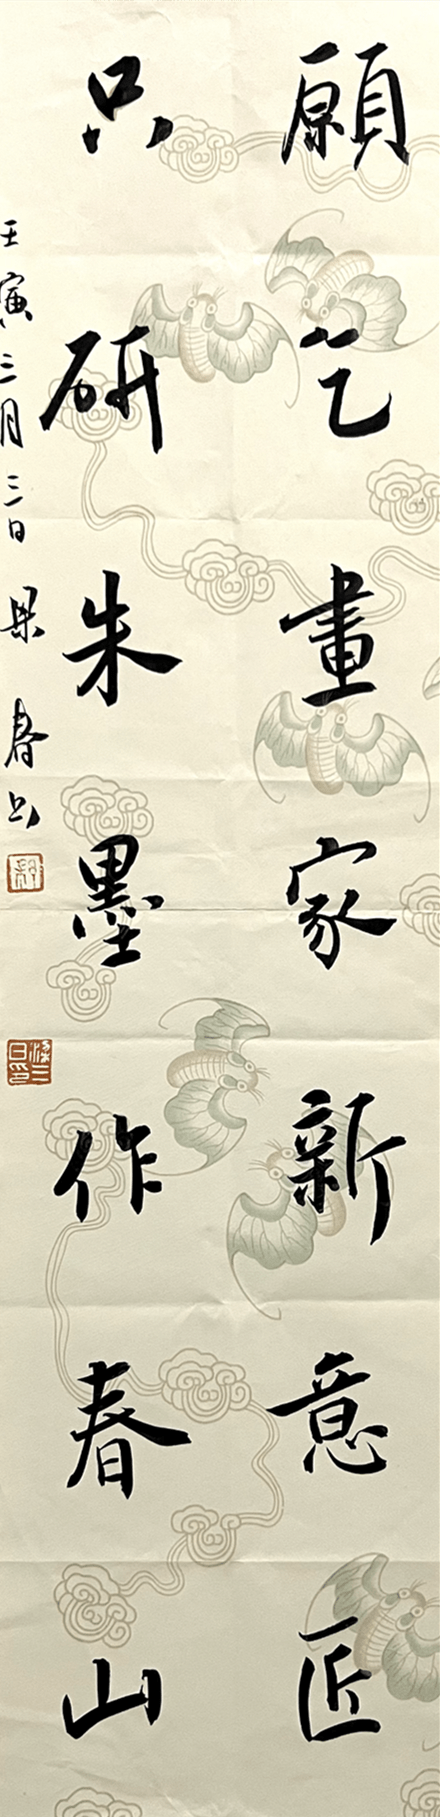 願乞畫家新意匠
只研朱墨作春山
壬寅三月三日梁春书